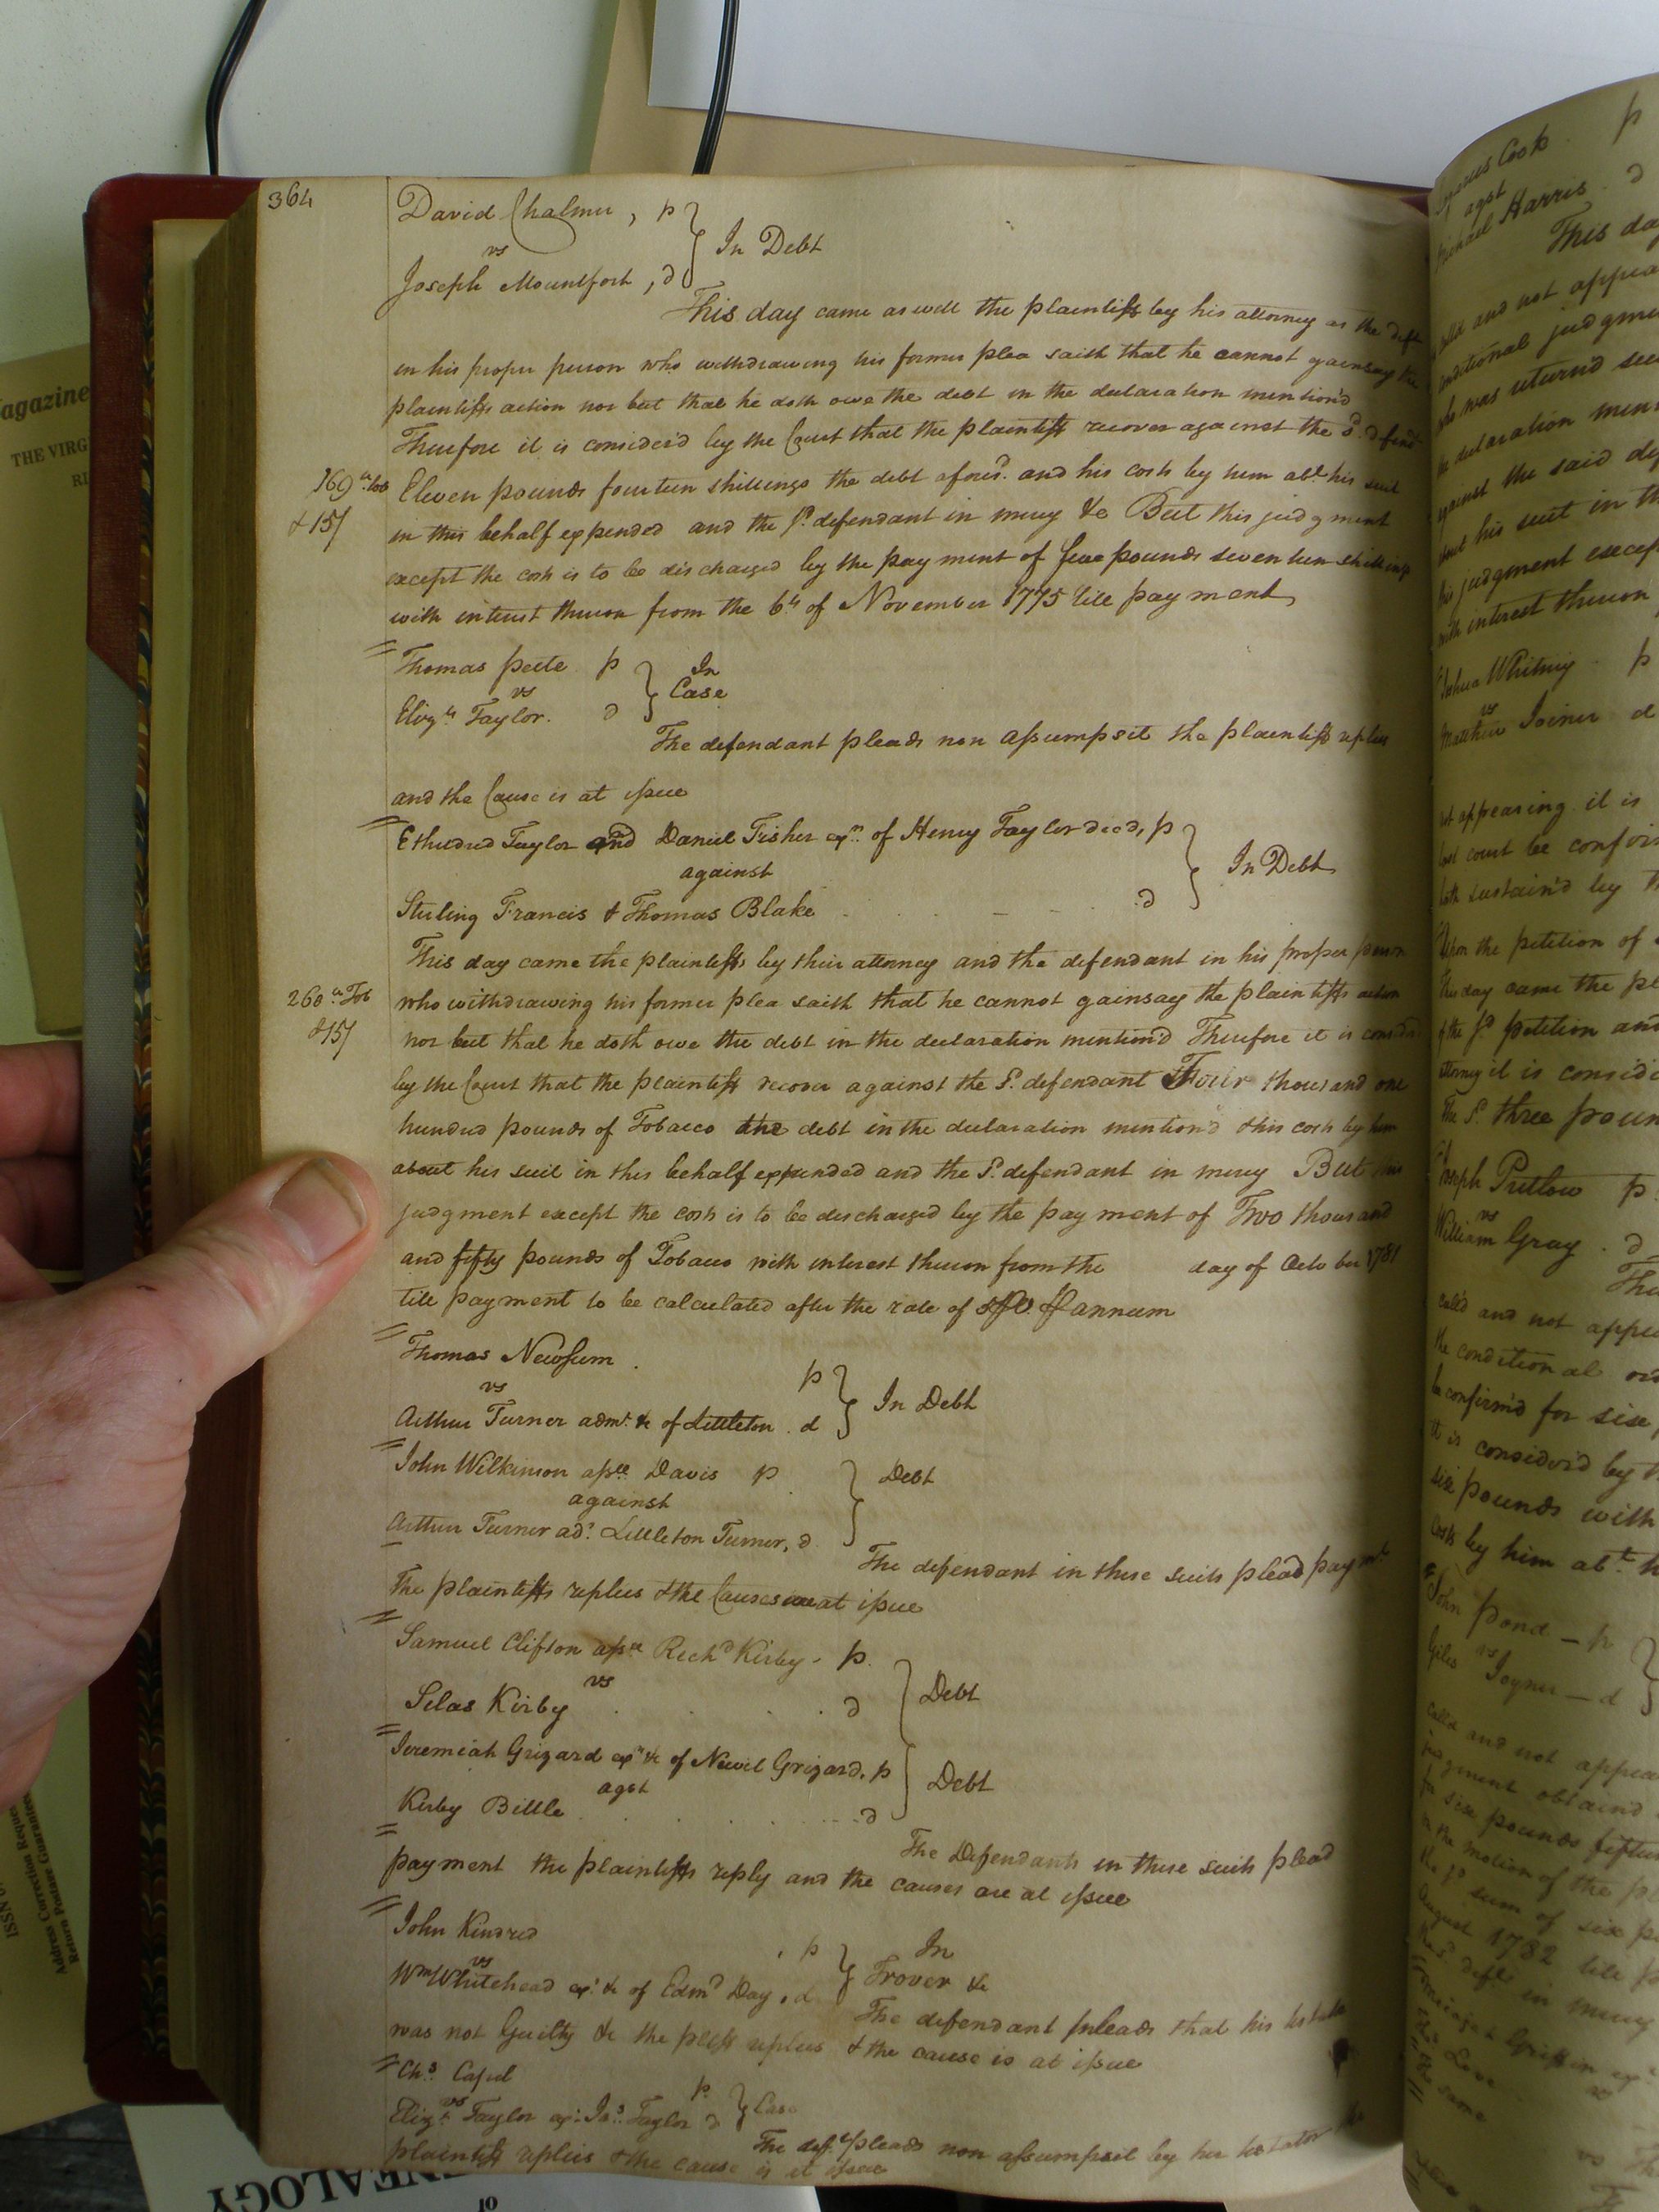 364
David Chalmer, p
vs
In Debt
Joseph Mountfort, d
This day came as well the plaintiff by his attorney as the deft
in his proper person who withdrawing his former plea saith that he cannot gainsay the
plaintiffs action nor but that he doth owe the debt in the declaration mention'd
Therefore it is consider'd by the Court that the plaintiff recover against the sd. defend
169 lb tob
& 15/
Eleven pounds fourteen shillings the debt afores'd. and his costs by him abt. his suit
in this behalf expended and the sd defendant in mercy &c But this judgment
except the costs is to be discharged by the payment of five pounds seventeen shillings
with interest thereon from the 6th of November 1775 till payment
Thomas Peete p
vs
In
Case
Elizth Taylor. d
The defendant pleads non assumpsit the plaintiff replies
and the Cause is at issue
Etheldred Taylor and Daniel Fisher exrs. of Henry Taylor decd, p
against
In Debt
Sterling Francis & Thomas Blake d
This day came the plaintiffs by their attorney and the defendant in his proper person
260 lb Tob
& 15/
who withdrawing his former plea saith that he cannot gainsay the plaintiffs action
nor but that he doth owe the debt in the declaration mention'd Therefore it is consider'd
by the Court that the plaintiff recover against the sd. defendant Four thousand one
hundred pounds of Tobacco the debt in the declaration mention'd & his costs by him
about his suit in this behalf expended and the sd. defendant in mercy But this
judgment except the costs is to be discharged by the payment of Two thousand
and fifty pounds of Tobacco with interest thereon from the day of October 1781
till payment to be calculated after the rate of annum
Thomas Newsum p
vs
In Debt
Arthur Turner admr. &c of Littleton d
John Wilkinson assee Davis p
against
Debt
Arthur Turner adr. Littleton Turner, d
The defendant in these suits plead paymt
The plaintiffs replies & the Causes are at issue
Samuel Clifton assee Richd Kirby p.
vs
Debt
Silas Kirby d
Jeremiah Grizard exr &c of Newit Grizard, p
agst
Debt
Kirby Bittle d
The Defendants in these suits plead
payment the plaintiffs reply and the causes are at issue
John Kindred p
vs
In
Trover &c
Wm Whitehead exr. &c of Edmd Day, d
The defendant pleads that his testator
was not Guilty &c the pltff replies & the cause is at issue
Chs. Capel p.
vs
Case
Elizth Taylor exr. Jas. Taylor d
The deft. pleads non assumpsit by her testator the
plaintiff replies & the cause is at issue
agst
Michael Harris d
This day
and not appea
conditional judgme
who was returnd
the declaration men
against the said def
about his suit in th
this judgment excep
with interest thereon
Joshua Whitney p
vs
Matthew Joiner d
not appearing it is
last court be confir
both sustain'd by th
Upon the petition of
This day came the pl
of the sd petition and
attorney it is conside
The sd. three poun
Joseph Pretlow p
vs
William Gray d
call'd and not appea
the conditional ord
be confirm'd for six
it is consider'd by t
six pounds with
costs by him abt. h
John Pond p
vs
Giles Joyner d
call'd and not appea
judgment obtain'd
for six pounds fifteen
on the motion of the pl
the sd sum of six p
August 1782 till p
the sd deft in mercy
the same
agazine
THE VIRG
RI
ISSN
Address Correction Reques
Return Postage Guarantee
OF
NEALOGY